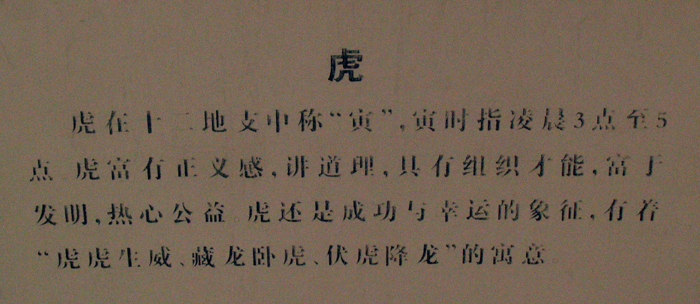 虎
虎在十二地支中称“寅”,寅时指凌晨3点至5
点 虎富有正义感,讲道理,具有组织才能,富于
发明,热心公益 虎还是成功与幸运的象征,有着
“虎虎生威、藏龙卧虎、伏虎降龙”的寓意